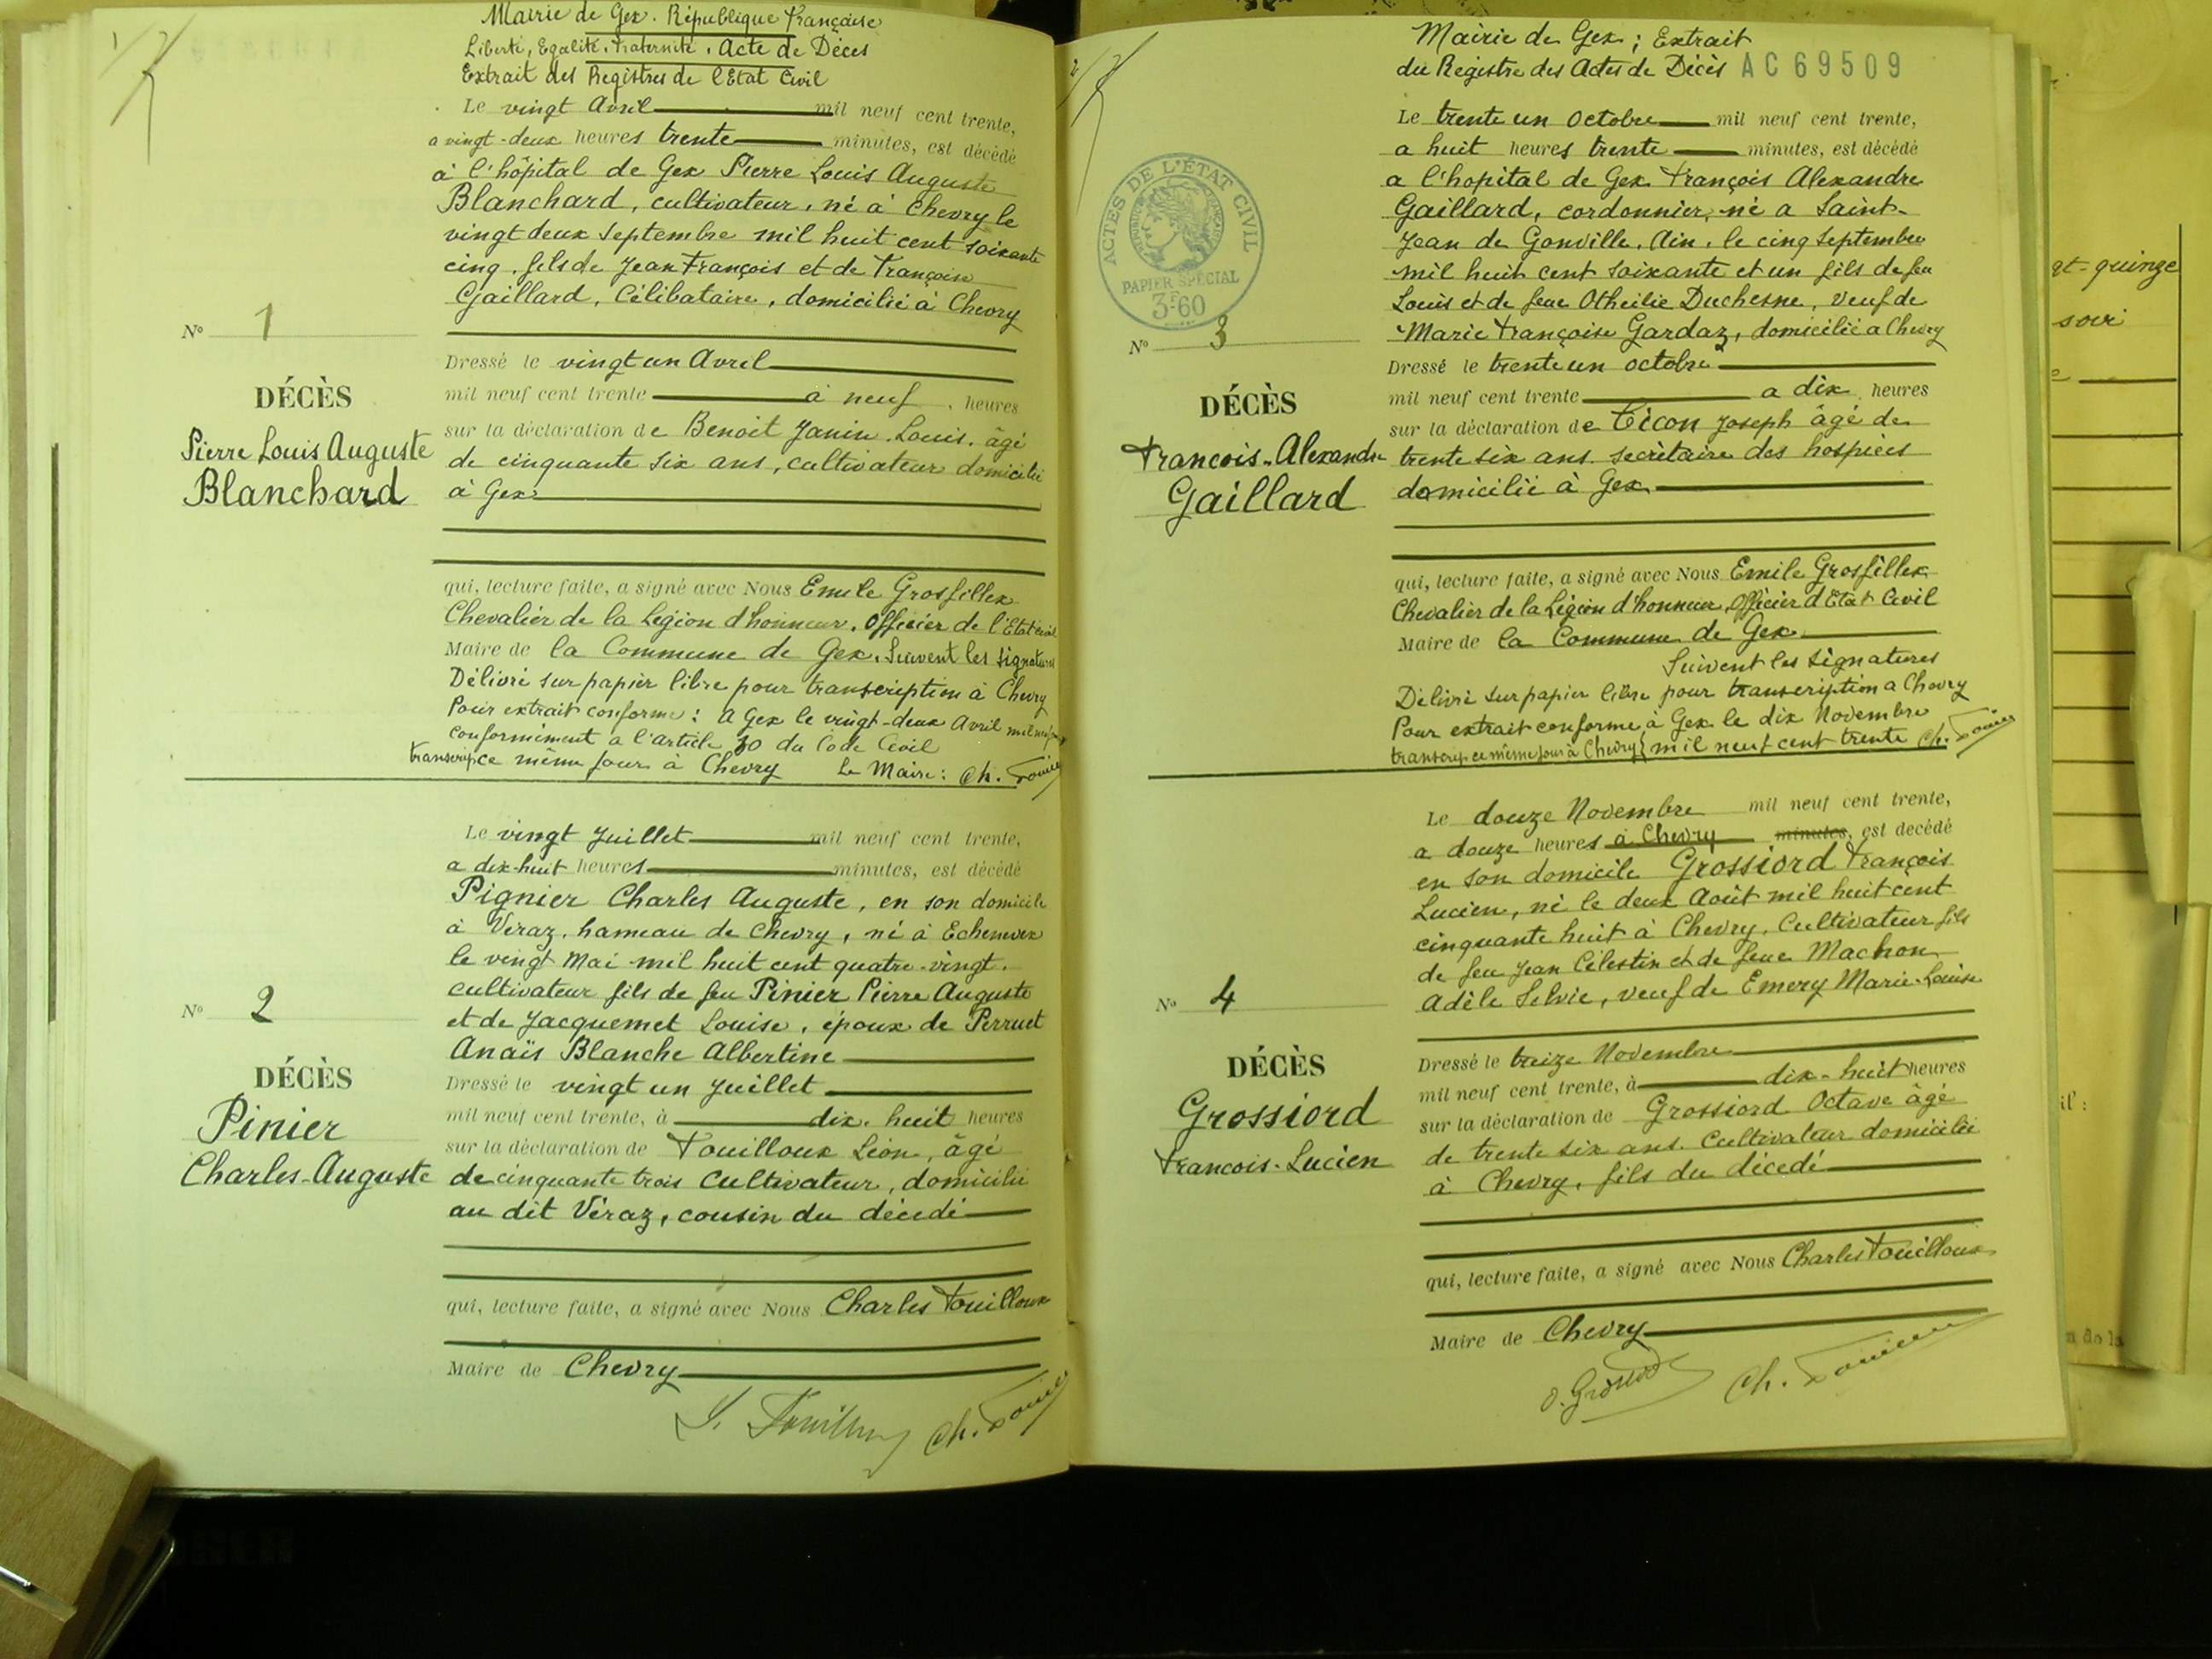 1/
Mairie de Gex. République Française
Liberté, Egalité, Fraternité. Acte de Décès
Extrait des Registres de l'Etat Civil
Le vingt Avril mil neuf cent trente,
a vingt-deux heures trente minutes, est décédé
à l'hôpital de Gex Pierre Louis Auguste
Blanchard, cultivateur, né à Chevry le
vingt deux Septembre mil huit cent soixante
cinq, fils de Jean François et de Françoise
Gaillard, Célibataire, domicilié à Chevry
No 1
DÉCÈS
Pierre Louis Auguste
Blanchard
Dressé le vingt un Avril
mil neuf cent trente à neuf, heures
sur la déclaration de Benoit Janin Louis, âgé
de cinquante six ans, cultivateur domicilié
à Gex
qui, lecture faite, a signé avec Nous Emile Grosfillex
Chevalier de la Légion d'honneur, Officier de l'Etat civil
Maire de la Commune de Gex. Suivent les signatures
Délivré sur papier libre pour transcription à Chevry
Pour extrait conforme: A Gex le vingt-deux Avril mil neuf
conformément a l'article 80 du Code Civil
transcrip. ce même jour à Chevry Le Maire: Ch.
Le vingt Juillet mil neuf cent trente,
a dix-huit heures minutes, est décédé
Pignier Charles Auguste, en son domicile
à Véraz, hameau de Chevry, né à Echenevex
le vingt Mai mil huit cent quatre-vingt.
cultivateur fils de feu Pinier Pierre Auguste
et de Jacquemet Louise, époux de Perruet
Anaïs Blanche Albertine
No 2
DÉCÈS
Pinier
Charles-Auguste
Dressé le vingt un Juillet
mil neuf cent trente, à dix-huit heures
sur la déclaration de Fouilloux Léon, âgé
de cinquante trois Cultivateur, domicilié
au dit Véraz, cousin du décédé
qui, lecture faite, a signé avec Nous Charles Fouilloux
Maire de Chevry
L. Fouilloux Ch.
2/
Mairie de Gex; Extrait
du Registre des Actes de Décès AC69509
Le trente un Octobre mil neuf cent trente,
a huit heures trente minutes, est décédé
a l'hopital de Gex François Alexandre
Gaillard, cordonnier, né a Saint-
Jean de Gonville, Ain, le cinq Septembre
mil huit cent soixante et un fils de feu
Louis et de feue Otheilie Duchesne, veuf de
Marie Françoise Gardaz, domicilié a Chevry
ACTES DE L'ÉTAT CIVIL
PAPIER SPÉCIAL
3F60
No 3
DÉCÈS
Francois-Alexandre
Gaillard
Dressé le trente un octobre
mil neuf cent trente a dix heures
sur la déclaration de Ticon Joseph âgé de
trente six ans secrétaire des hospices
domicilié à Gex
qui, lecture faite, a signé avec Nous Emile Grosfillex
Chevalier de la Légion d'honneur, Officier d'Etat Civil
Maire de la Commune de Gex
Suivent les signatures
Délivré sur papier libre pour transcription a Chevry
Pour extrait conforme, à Gex le dix Novembre
transcrip. ce même jour à Chevry mil neuf cent trente Ch.
Le douze Novembre mil neuf cent trente,
a douze heures à Chevry minutes, est décédé
en son domicile Grossiord François
Lucien, né le deux Août mil huit cent
cinquante huit à Chevry, Cultivateur fils
de feu Jean Célestin et de feue Machon
Adèle Selvie, veuf de Emery Marie-Louise
No 4
DÉCÈS
Grossiord
Francois-Lucien
Dressé le treize Novembre
mil neuf cent trente, à dix-huit heures
sur la déclaration de Grossiord Octave âgé
de trente six ans. Cultivateur domicilié
à Chevry, fils du décédé
qui, lecture faite, a signé avec Nous Charles Fouilloux
Maire de Chevry
O. Grossiord Ch.
gt-quinze
soir
il:
n de la